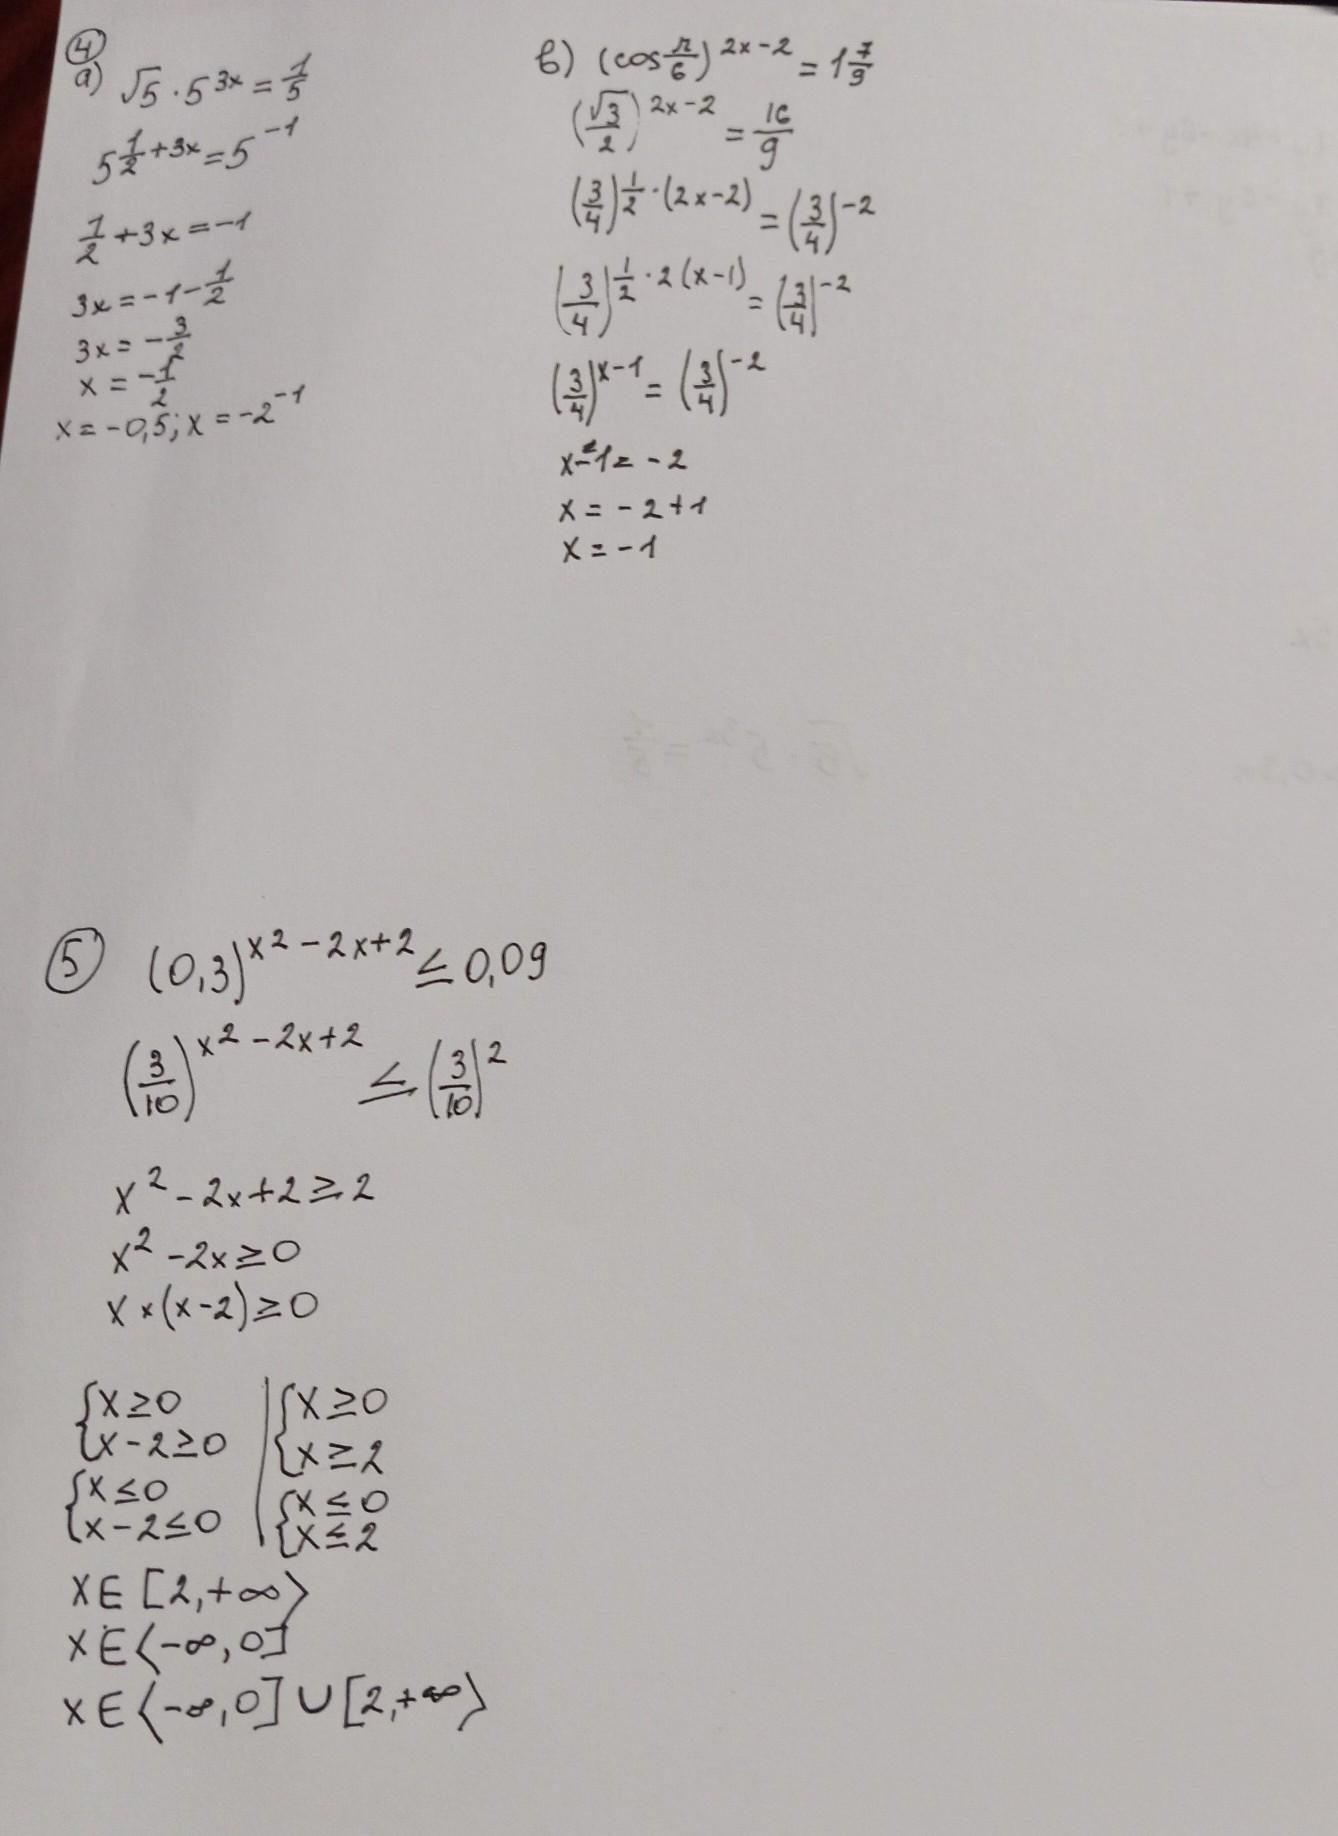 4
а) √5 · 5^{3x} = 1/5
5^{1/2+3x} = 5^{-1}
1/2 + 3x = -1
3x = -1 - 1/2
3x = -3/2
x = -1/2
x = -0,5; x = -2^{-1}
в) (cos π/6)^{2x-2} = 1 7/9
(√3/2)^{2x-2} = 16/9
(3/4)^{1/2·(2x-2)} = (3/4)^{-2}
(3/4)^{1/2·2(x-1)} = (3/4)^{-2}
(3/4)^{x-1} = (3/4)^{-2}
x-1 = -2
x = -2+1
x = -1
5 (0,3)^{x²-2x+2} ≤ 0,09
(3/10)^{x²-2x+2} ≤ (3/10)²
x²-2x+2 ≥ 2
x²-2x ≥ 0
x × (x-2) ≥ 0
{x ≥ 0 | {x ≥ 0
{x-2 ≥ 0 | {x ≥ 2
{x ≤ 0 | {x ≤ 0
{x-2 ≤ 0 | {x ≤ 2
x∈[2,+∞⟩
x∈⟨-∞,0]
x∈⟨-∞,0]∪[2,+∞⟩